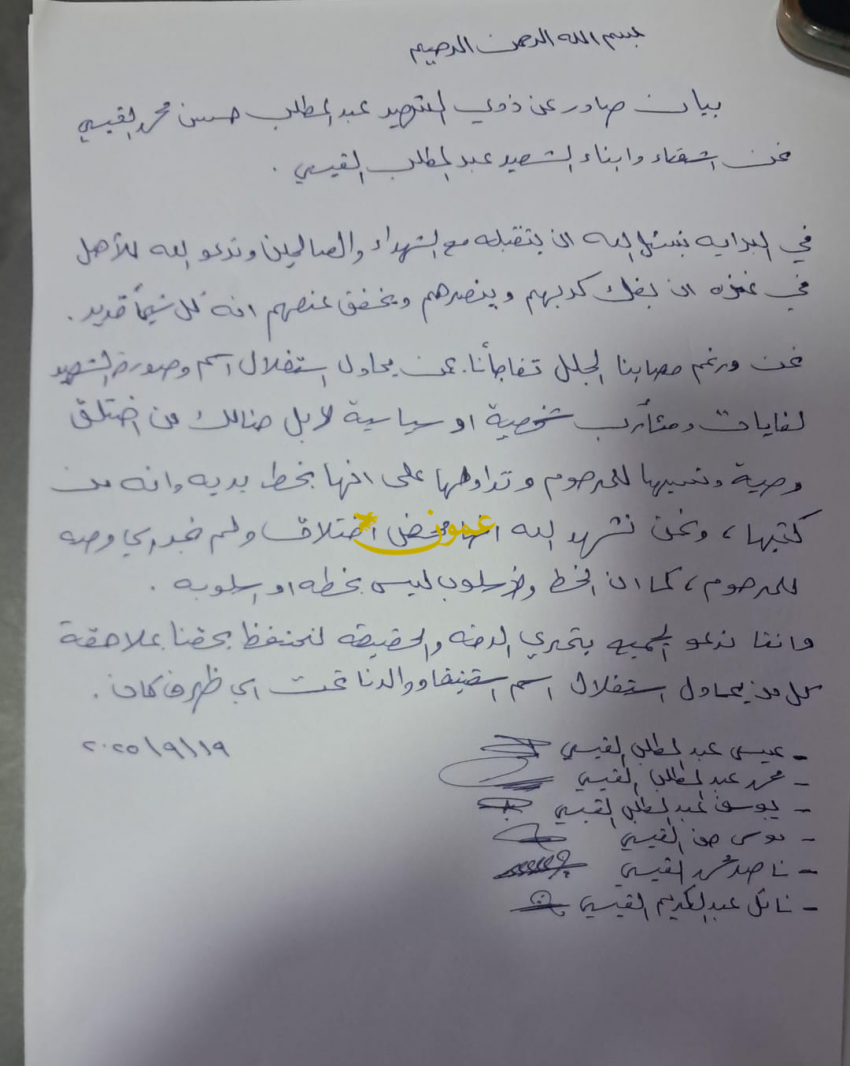 بسم الله الرحمن الرحيم
بيان صادر عن ذوي الشهيد عبد المطلب حسن محمد القيسي
نحن اشقاء وابناء الشهيد عبد المطلب القيسي .
في البدايه نسئل الله ان يتقبله مع الشهداء والصالحين وندعو الله للأهل
في غزه ان يفك كربهم وينصرهم ويخفف عنهم انه على شيئاً قدير .
نحن ورغم مصابنا الجلل تفاجأنا بمن يحاول استغلال اسم وصورة الشهيد
لغايات ومئأرب شخصية او سياسية لا بل هنالك من اختلق
وصية ونسبها للمرحوم وتداولها على انها بخط يديه وانه من
كتبها ، ونحن نشهد الله انها محض اختلاق ولم نجد اي وصيه
عمون
للمرحوم ، كما ان الخط والاسلوب ليس بخطه او اسلوبه .
واننا ندعو الجميع بتحري الدقه والحقيقه لنحتفظ بحقنا بملاحقة
كل من يحاول استغلال اسم شقيقنا ووالدنا تحت اي ظرف كان .
- عيسى عبد المطلب القيسي ٢٠٢٥/٩/١٩
- محمد عبد المطلب القيسي
- يوسف عبد المطلب القيسي
- موسى حسن القيسي
- ناصر محمد القيسي
- نائل عبد الكريم القيسي